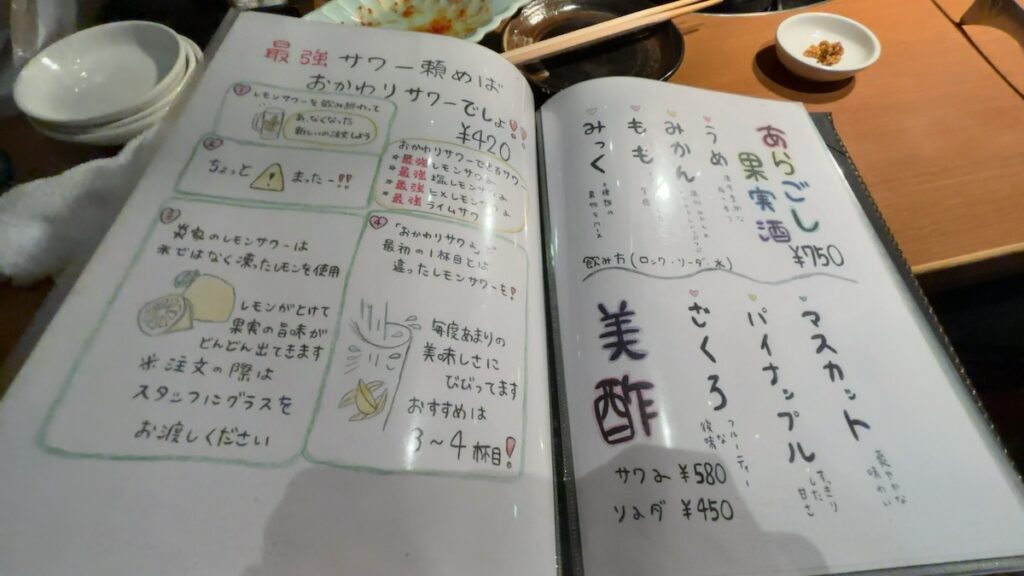 最強サワー頼めば
おかわりサワーでしょ!!
¥420
① レモンサワーを飲み終わって
あ、なくなった
新しいの注文しよう
② ちょっと ! まったー!!
おかわりサワーできるサワー
*最強レモンサワー
*最強塩レモンサワー
*最強ヒメレモンサワー
*最強ライムサワー
③ 当家のレモンサワーは
氷ではなく凍ったレモンを使用
レモンがとけて
果実の旨味が
どんどん出てきます
※注文の際は
スタッフにグラスを
お渡しください
④ 「おかわりサワー」で
最初の1杯目とは
違ったレモンサワーを!
毎度あまりの
美味しさに
びびってます
おすすめは
3〜4杯目!
あらごし
果実酒
¥750
うめ
みかん
もも
みっく
飲み方(ロック・ソーダ・水)
美酢
マスカット
爽やかな
味わい
パイナップル
すっきり
した甘さ
ざくろ
フルーティー
な
後味
サワー ¥580
ソーダ ¥450